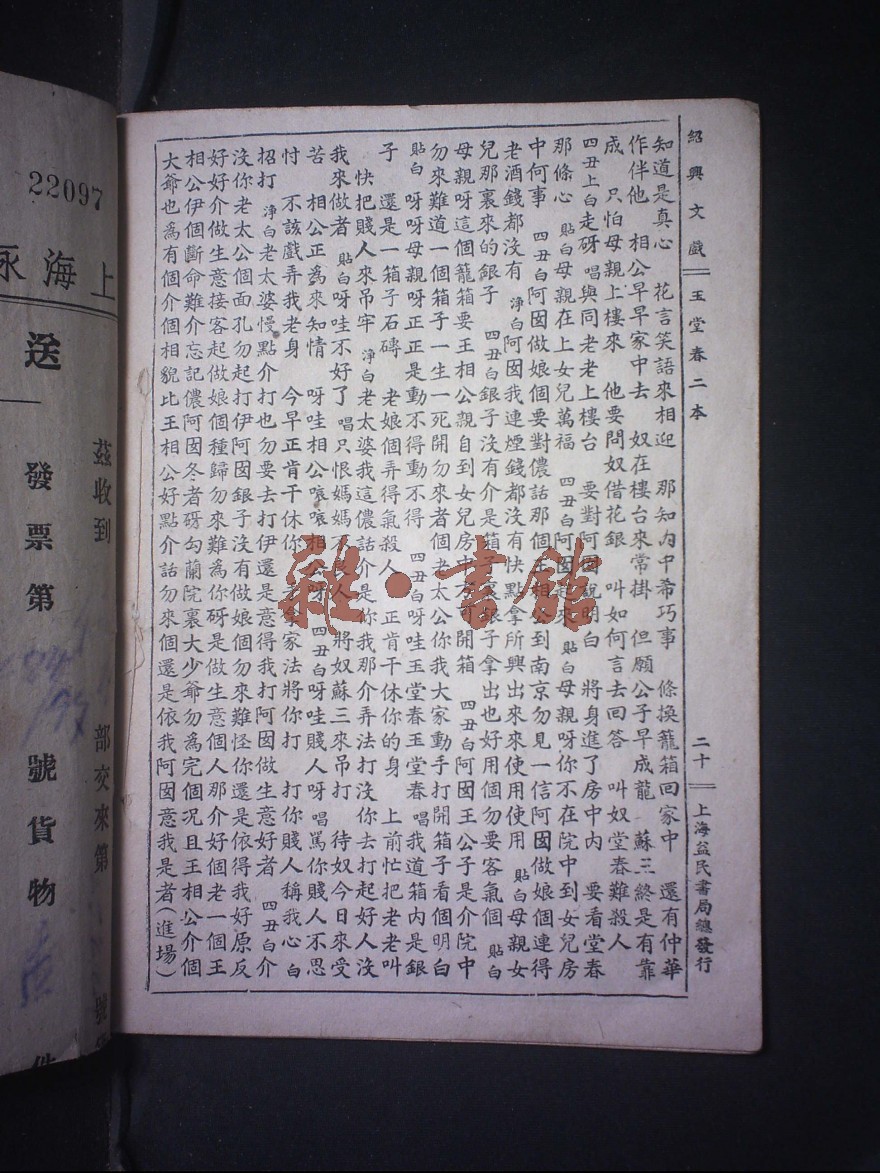 紹興文戲 玉堂春二本 二十 上海益民書局總發行
知道是真心 花言笑語來相迎 那知內中希巧事 條換籠箱回家中 還有仲華
作伴他 相公早早家中去 奴在樓台來常掛 但願公子早成龍 蘇三終是有靠
成 只怕母親上樓來 他要問奴借花銀 叫如何言去回答 叫奴堂春難殺人
四丑上白走砑 唱與同老老上樓台 要對阿囡說明白 將身進了房中內 要看堂春
那條心 貼白母親在上女兒萬福 四丑白阿囡起來 貼白母親呀你不在院中到女兒房
中何事 四丑白阿囡做娘個要對儂話那個王相公到南京勿見一信阿囡做娘個連得
老酒錢都沒有 淨白阿囡我連煙錢都沒有快點拿所興出來來使用使用 貼白母親女
兒那裏來的銀子 四丑白銀子沒有介是箱子裏銀子拿出也好用個勿要客氣個 貼白
母親呀這個籠箱要王相公親自到女兒房中方可開箱 四丑白阿囡王公子是介院中
勿來難道一個箱子一生一死開勿來者個老太公你我大家動手打開箱子看個明白
貼白 呀呀母親呀正正是動不得動不得 四丑白呀哇玉堂春玉堂春 唱我道箱內是銀
子 還是一箱子石磚 老娘個弄得氣殺人 正肯干休你的身 上前忙把老老叫
快把賤人來吊牢 淨白老太婆我這儂話介是你我那介弄法打沒你去打起好人沒
我來做者 貼白呀哇不好了 唱只恨媽媽不良人 將奴蘇三來吊打 待奴今日來受
苦 相公正爲來知情 呀哇相公噯噯相公呀 四丑白呀哇賤人呀 唱罵你賤人不思
忖 不該戲弄我老身 今早正肯干休你 老拿家法將你打 打你賤人稱我心 白
招打 淨白老太婆慢點介打也勿要去打伊還是意得我打阿囡做生意好者 四丑白介
沒你老太公個面孔勿起打伊阿囡銀子沒有做娘個勿來難怪你還是依得我好原反
好好介做生意接客起做娘個種歸勿來難爲你砑是做生意個人那介好個老一個王
相公伊個斷命難介忘記儂阿囡冬者砑勾蘭院裏大少爺勿爲完個況且王相公介個
大爺也爲有個介個相貌比王相公好點介話勿來個還是依我阿囡意我是者(進場)
22097
上海永
送
發票第 號貨物 件
茲收到 部交來第 號
雜·書館